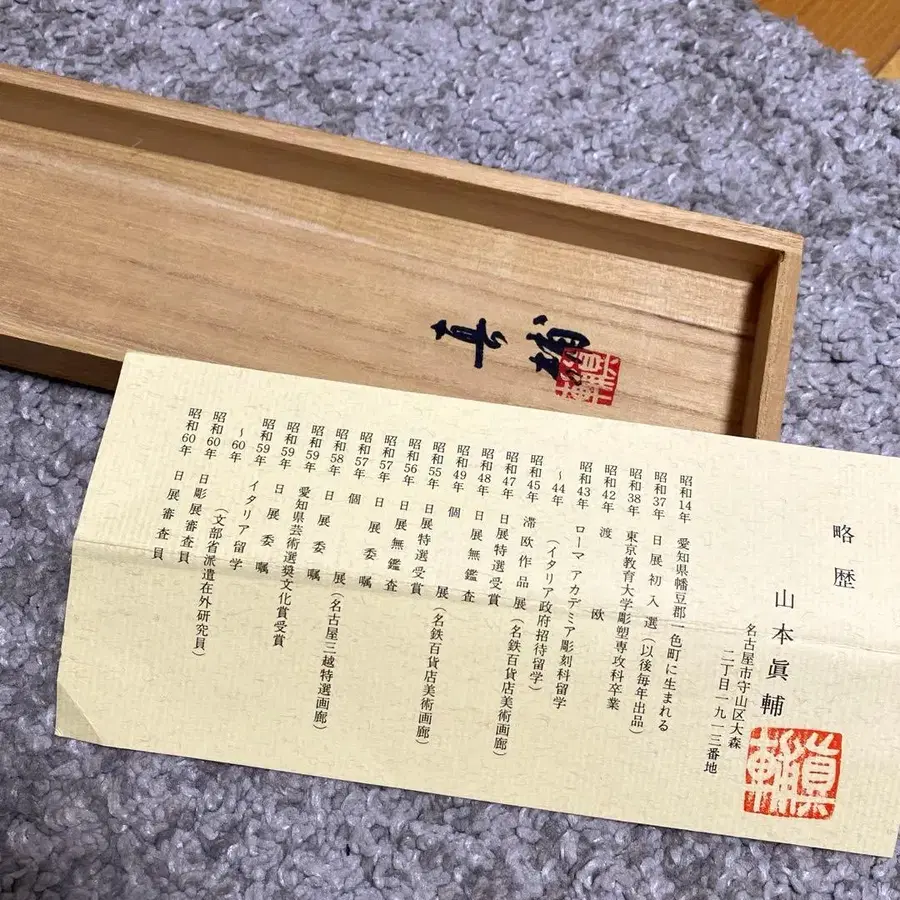 眞輔
眞輔
略歴
山本眞輔
名古屋市守山区大森
二丁目一九一三番地
眞輔
昭和14年 愛知県幡豆郡一色町に生まれる
昭和37年 日展初入選(以後毎年出品)
昭和38年 東京教育大学彫塑専攻科卒業
昭和42年 渡欧
昭和43年 ローマアカデミア彫刻科留学
~44年 (イタリア政府招待留学)
昭和45年 滞欧作品展(名鉄百貨店美術画廊)
昭和47年 日展特選受賞
昭和48年 日展無鑑査
昭和49年 個展(名鉄百貨店美術画廊)
昭和55年 日展特選受賞
昭和56年 日展無鑑査
昭和57年 日展委嘱
昭和57年 個展(名古屋三越特選画廊)
昭和58年 日展委嘱
昭和59年 愛知県芸術選奨文化賞受賞
昭和59年 日展委嘱
昭和59年 イタリア留学
~60年 (文部省派遣在外研究員)
昭和60年 日彫展審査員
昭和60年 日展審査員